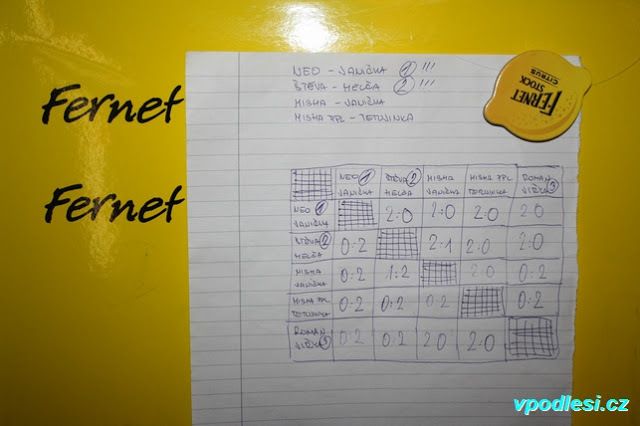 Fernet
Fernet
FERNET
STOCK
CITRUS
NEO - JANIČKA 1 !!!
ŠTĚVA - HELČA 2 !!!
MISHA - JANIČKA
MISHA PPL - TETUINKA
NEO 1 ŠTĚVA 2 MISHA MISHA PPL ROMAN
JANIČKA HELČA JANIČKA TETUINKA 3
NEO 1 2:0 2:0 2:0 2:0
JANIČKA
ŠTĚVA 2 0:2 2:1 2:0 2:0
HELČA
MISHA 0:2 1:2 2:0 0:2
JANIČKA
MISHA PPL 0:2 0:2 0:2 0:2
TETUINKA
ROMAN 0:2 0:2 2:0 2:0
3
vpodlesi.cz